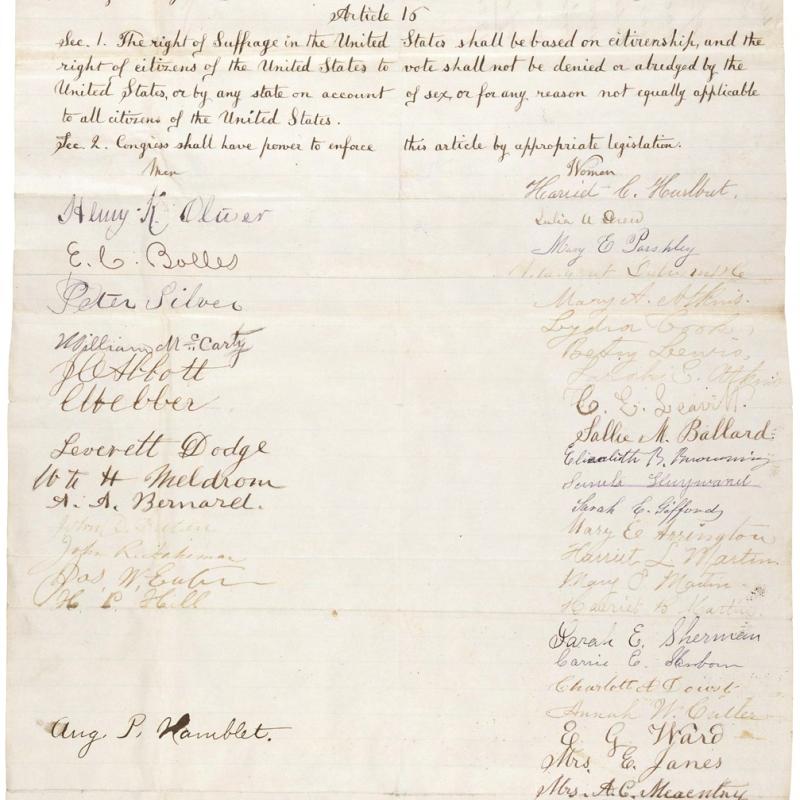 Article 16
Sec. 1. The right of Suffrage in the United States shall be based on citizenship, and the
right of citizens of the United States to vote shall not be denied or abridged by the
United States, or by any state on account of sex, or for any reason not equally applicable
to all citizens of the United States.
Sec. 2. Congress shall have power to enforce this article by appropriate legislation.
Men
Henry K Oliver
E. C. Bolles
Peter Silver
William McCarty
J C Abbott
Webber
Leverett Dodge
Wm H Meldrom
A. A. Bernard.
John
John
W.
H. P. Hill
Aug. P. Hamblet.
Women
Harriet C. Hurlbut.
Julia A Drew
Mary E Parshley
Margaret
Mary A. Atkins.
Lydia Cook
Betsy Lewis,
Sarah E. Atkins
C. E. Leavitt.
Sallie M. Ballard.
Elizabeth B. Browning
Sarah E. Gifford
Mary E Arrington
Harriet L Martin
Mary P. Martin
Harriet B Martin
Sarah E. Sherman
Carrie E. Sanborn
Charlott A Dowst
Annah W. Cutler
E G Ward
Mrs. E. Janes
Mrs. A. C.